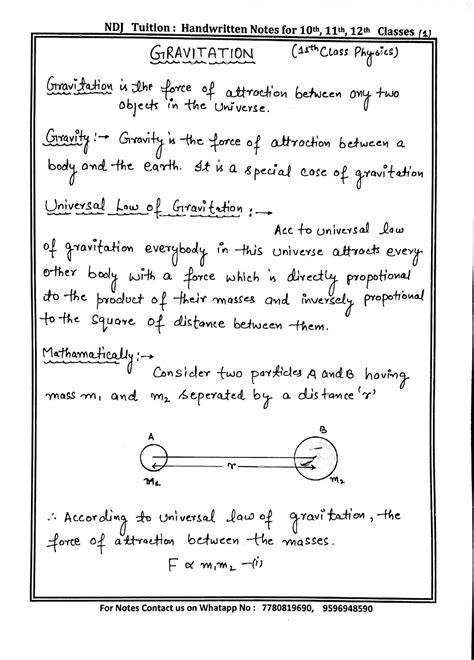 NDJ Tuition : Handwritten Notes for 10th, 11th, 12th Classes (1)
GRAVITATION (11th Class Physics)
Gravitation is the force of attraction between any two
objects in the Universe.
Gravity :→ Gravity is the force of attraction between a
body and the earth. It is a special case of gravitation
Universal Law of Gravitation :→
Acc to universal law
of gravitation everybody in this universe attracts every
other body with a force which is directly propotional
to the product of their masses and inversely propotional
to the square of distance between them.
Mathamatically :→
Consider two particles A and B having
mass m₁ and m₂ seperated by a distance 'r'
A B
r
m₁ m₂
∴ According to universal law of gravitation, the
force of attraction between the masses.
F ∝ m₁m₂ —(i)
For Notes Contact us on Whatapp No : 7780819690, 9596948590